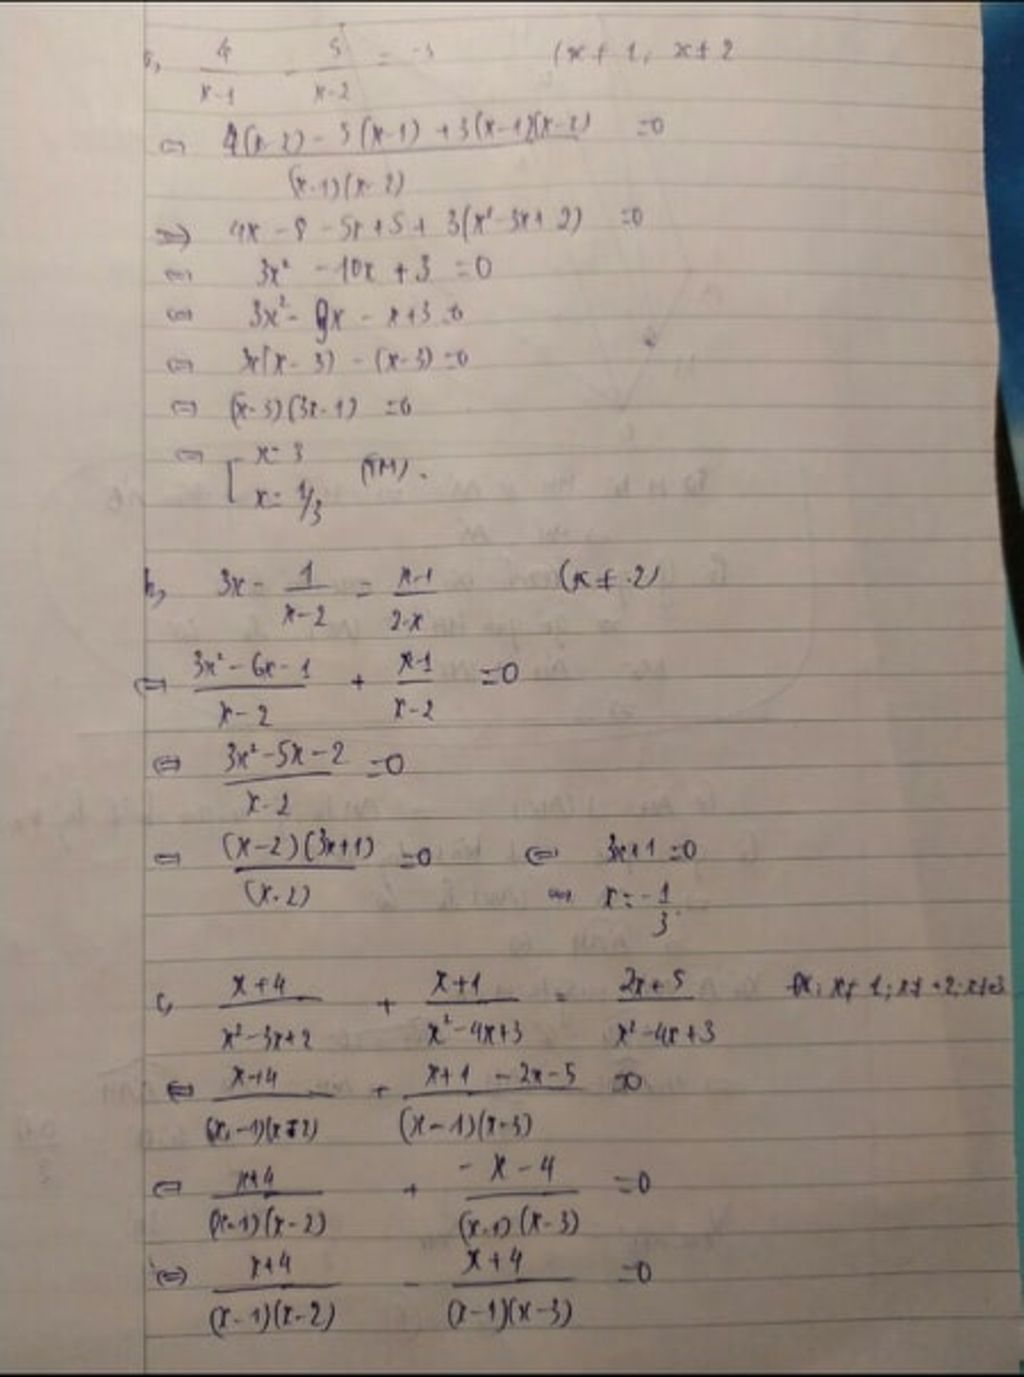 a, 4/(x-1) - 5/(x-2) = -3 (x ≠ 1, x ≠ 2
⇔ (4(x-2) - 5(x-1) + 3(x-1)(x-2))/((x-1)(x-2)) =0
⇒ 4x - 8 - 5x + 5 + 3(x² - 3x + 2) =0
⇔ 3x² - 10x + 3 =0
⇔ 3x² - 9x - x + 3 =0
⇔ 3x(x - 3) - (x-3) =0
⇔ (x-3)(3x-1) =0
⇔ [ x = 3
x = 1/3 (TM).
b, 3x - 1/(x-2) = (x-1)/(2-x) (x ≠ 2)
⇔ (3x² - 6x - 1)/(x-2) + (x-1)/(x-2) =0
⇔ (3x² - 5x - 2)/(x-2) =0
⇔ ((x-2)(3x+1))/(x-2) =0 ⇔ 3x+1 =0
⇔ x = -1/3.
c, (x+4)/(x² - 3x + 2) + (x+1)/(x² - 4x + 3) = (2x+5)/(x² - 4x + 3)
⇔ (x+4)/((x-1)(x-2)) + (x+1 - 2x - 5)/((x-1)(x-3)) =0
⇔ (x+4)/((x-1)(x-2)) + (-x - 4)/((x-1)(x-3)) =0
⇔ (x+4)/((x-1)(x-2)) - (x+4)/((x-1)(x-3)) =0